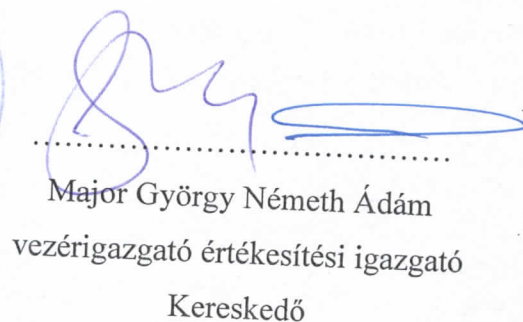 Major György Németh Ádám
vezérigazgató értékesítési igazgató
Kereskedő